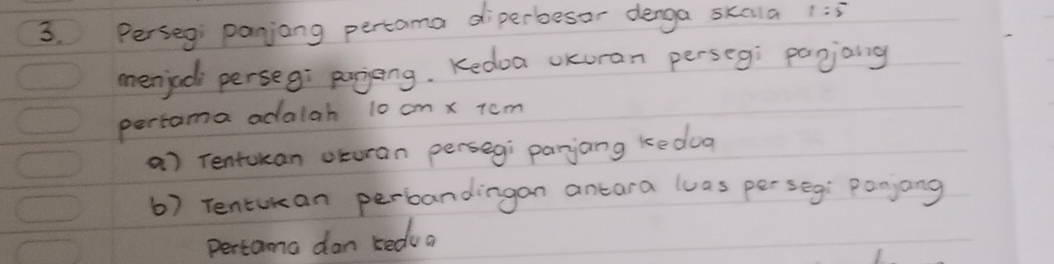 3. Persegi panjang pertama diperbesar denga skala 1:5
menjadi persegi panjang. Kedua ukuran persegi panjang
pertama adalah 10 cm x 7cm
a) Tentukan ukuran persegi panjang kedua
b) Tentukan perbandingan antara luas persegi panjang
pertama dan kedua